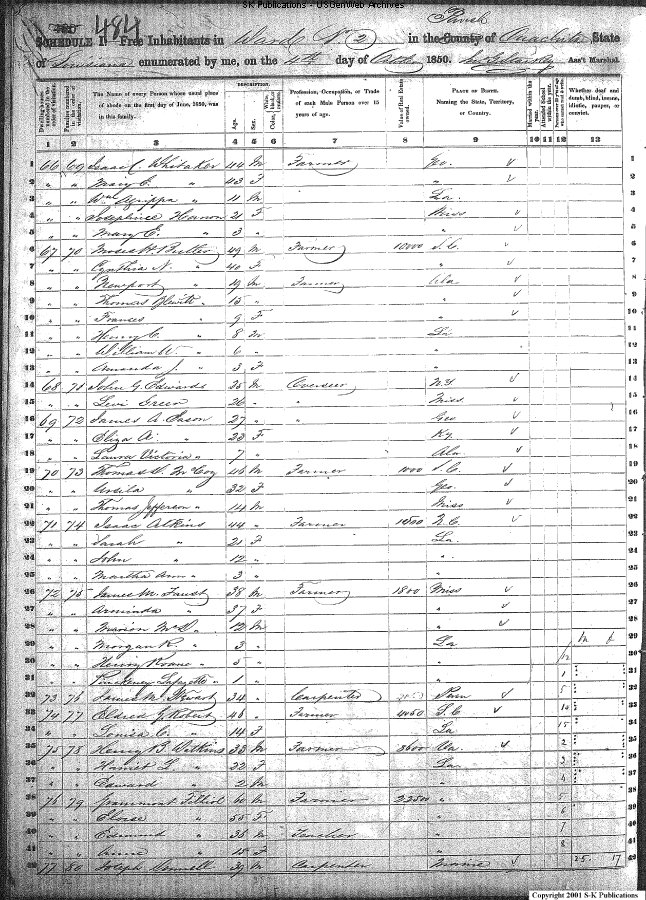 S-K Publications - USGenWeb Archives
484
SCHEDULE I. Free Inhabitants in Ward No 2 in the County Parish of Ouachita State
of Louisiana enumerated by me, on the 4th day of Octbr 1850. Ass't Marshal.
Dwelling-houses numbered in the order of visitation. Families numbered in the order of visitation. The Name of every Person whose usual place of abode on the first day of June, 1850, was in this family. DESCRIPTION. Age. Sex. Color, White, black, or mulatto. Profession, Occupation, or Trade of each Male Person over 15 years of age. Value of Real Estate owned. PLACE OF BIRTH. Naming the State, Territory, or Country. Married within the year. Attended School within the year. Persons over 20 y'rs of age who cannot read & write. Whether deaf and dumb, blind, insane, idiotic, pauper, or convict.
1 2 3 4 5 6 7 8 9 10 11 12 13
1 66 69 Isaac C. Whitaker 44 M Farmer Geo. 1
2 " " Mary E. " 43 F " 2
3 " " Wm Agrippa " 11 M La. 3
4 " " Josephine 21 F Miss 4
5 " " Mary E. " 3 " " 5
6 67 70 Moses H. Butler 49 M Farmer 10000 S.C. 6
7 " " Cynthia N. " 40 F " 7
8 " " Newport " 19 M Farmer Ala 8
9 " " Thomas Hewitt " 15 " " 9
10 " " Frances " 9 F " 10
11 " " Henry C. " 8 M La 11
12 " " William W. " 6 " " 12
13 " " Amanda J. " 3 F " 13
14 68 71 John G. Edwards 25 M Overseer N.Y. 14
15 " " Levi Green 26 " " Miss. 15
16 69 72 James A. Cason 27 " " Geo 16
17 " " Eliza A. " 23 F Ky. 17
18 " " Laura Victoria " 7 " Ala 18
19 70 73 Thomas McCoy 46 M Farmer 1000 S.C. 19
20 " " " 32 F Geo. 20
21 " " Thomas Jefferson " 14 M Miss 21
22 71 74 Isaac Atkins 44 " Farmer 1500 N.C. 22
23 " " Sarah " 21 F La. 23
24 " " John " 12 " " 24
25 " " Martha Ann " 3 " " 25
26 72 75 James M. Faust 38 M Farmer 1800 Miss 26
27 " " Arminda " 37 F " 27
28 " " Marion " 12 M " 28
29 " " Morgan R. " 3 " La 29
30 " " Henry " 5 " " 30
31 " " Pinckney Lafayette " 1 " " 31
32 73 76 James M. Stuart 34 " Carpenter Penn 32
33 74 77 Eldred G. Robert 46 " Farmer 4050 S.C. 33
34 " " Louisa C. " 14 F La 34
35 75 78 Henry B. Watkins 33 M Farmer 3600 Va. 35
36 " " Harriet L. " 22 F La. 36
37 " " Edward " 2 M " 37
38 76 79 Grammont Filhiol 60 M Farmer 22500 " 38
39 " " Eloise " 55 F " 39
40 " " Edmund " 35 M Teacher " 40
41 " " Anna " 15 F " 41
42 77 80 Joseph 39 M Carpenter Maine 25 17 42
Copyright 2001 S-K Publications